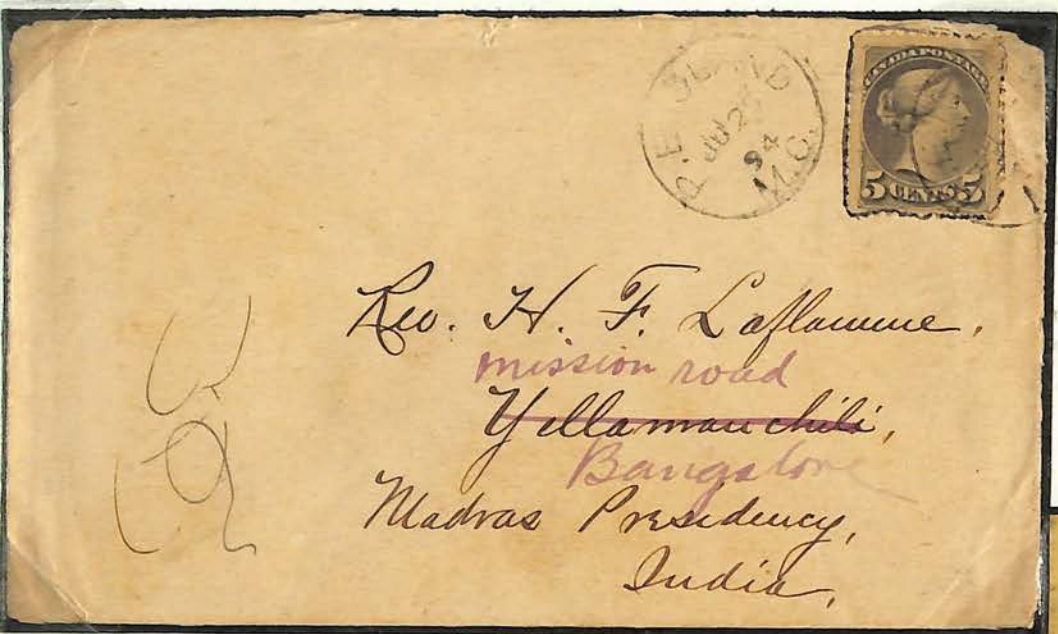 P.E. ISLAND
JU 25
94
M.C.
CANADA POSTAGE
5 CENTS 5
Rev. H. F. Laflamme,
mission road
Yellamanchili,
Bangalore
Madras Presidency,
India,